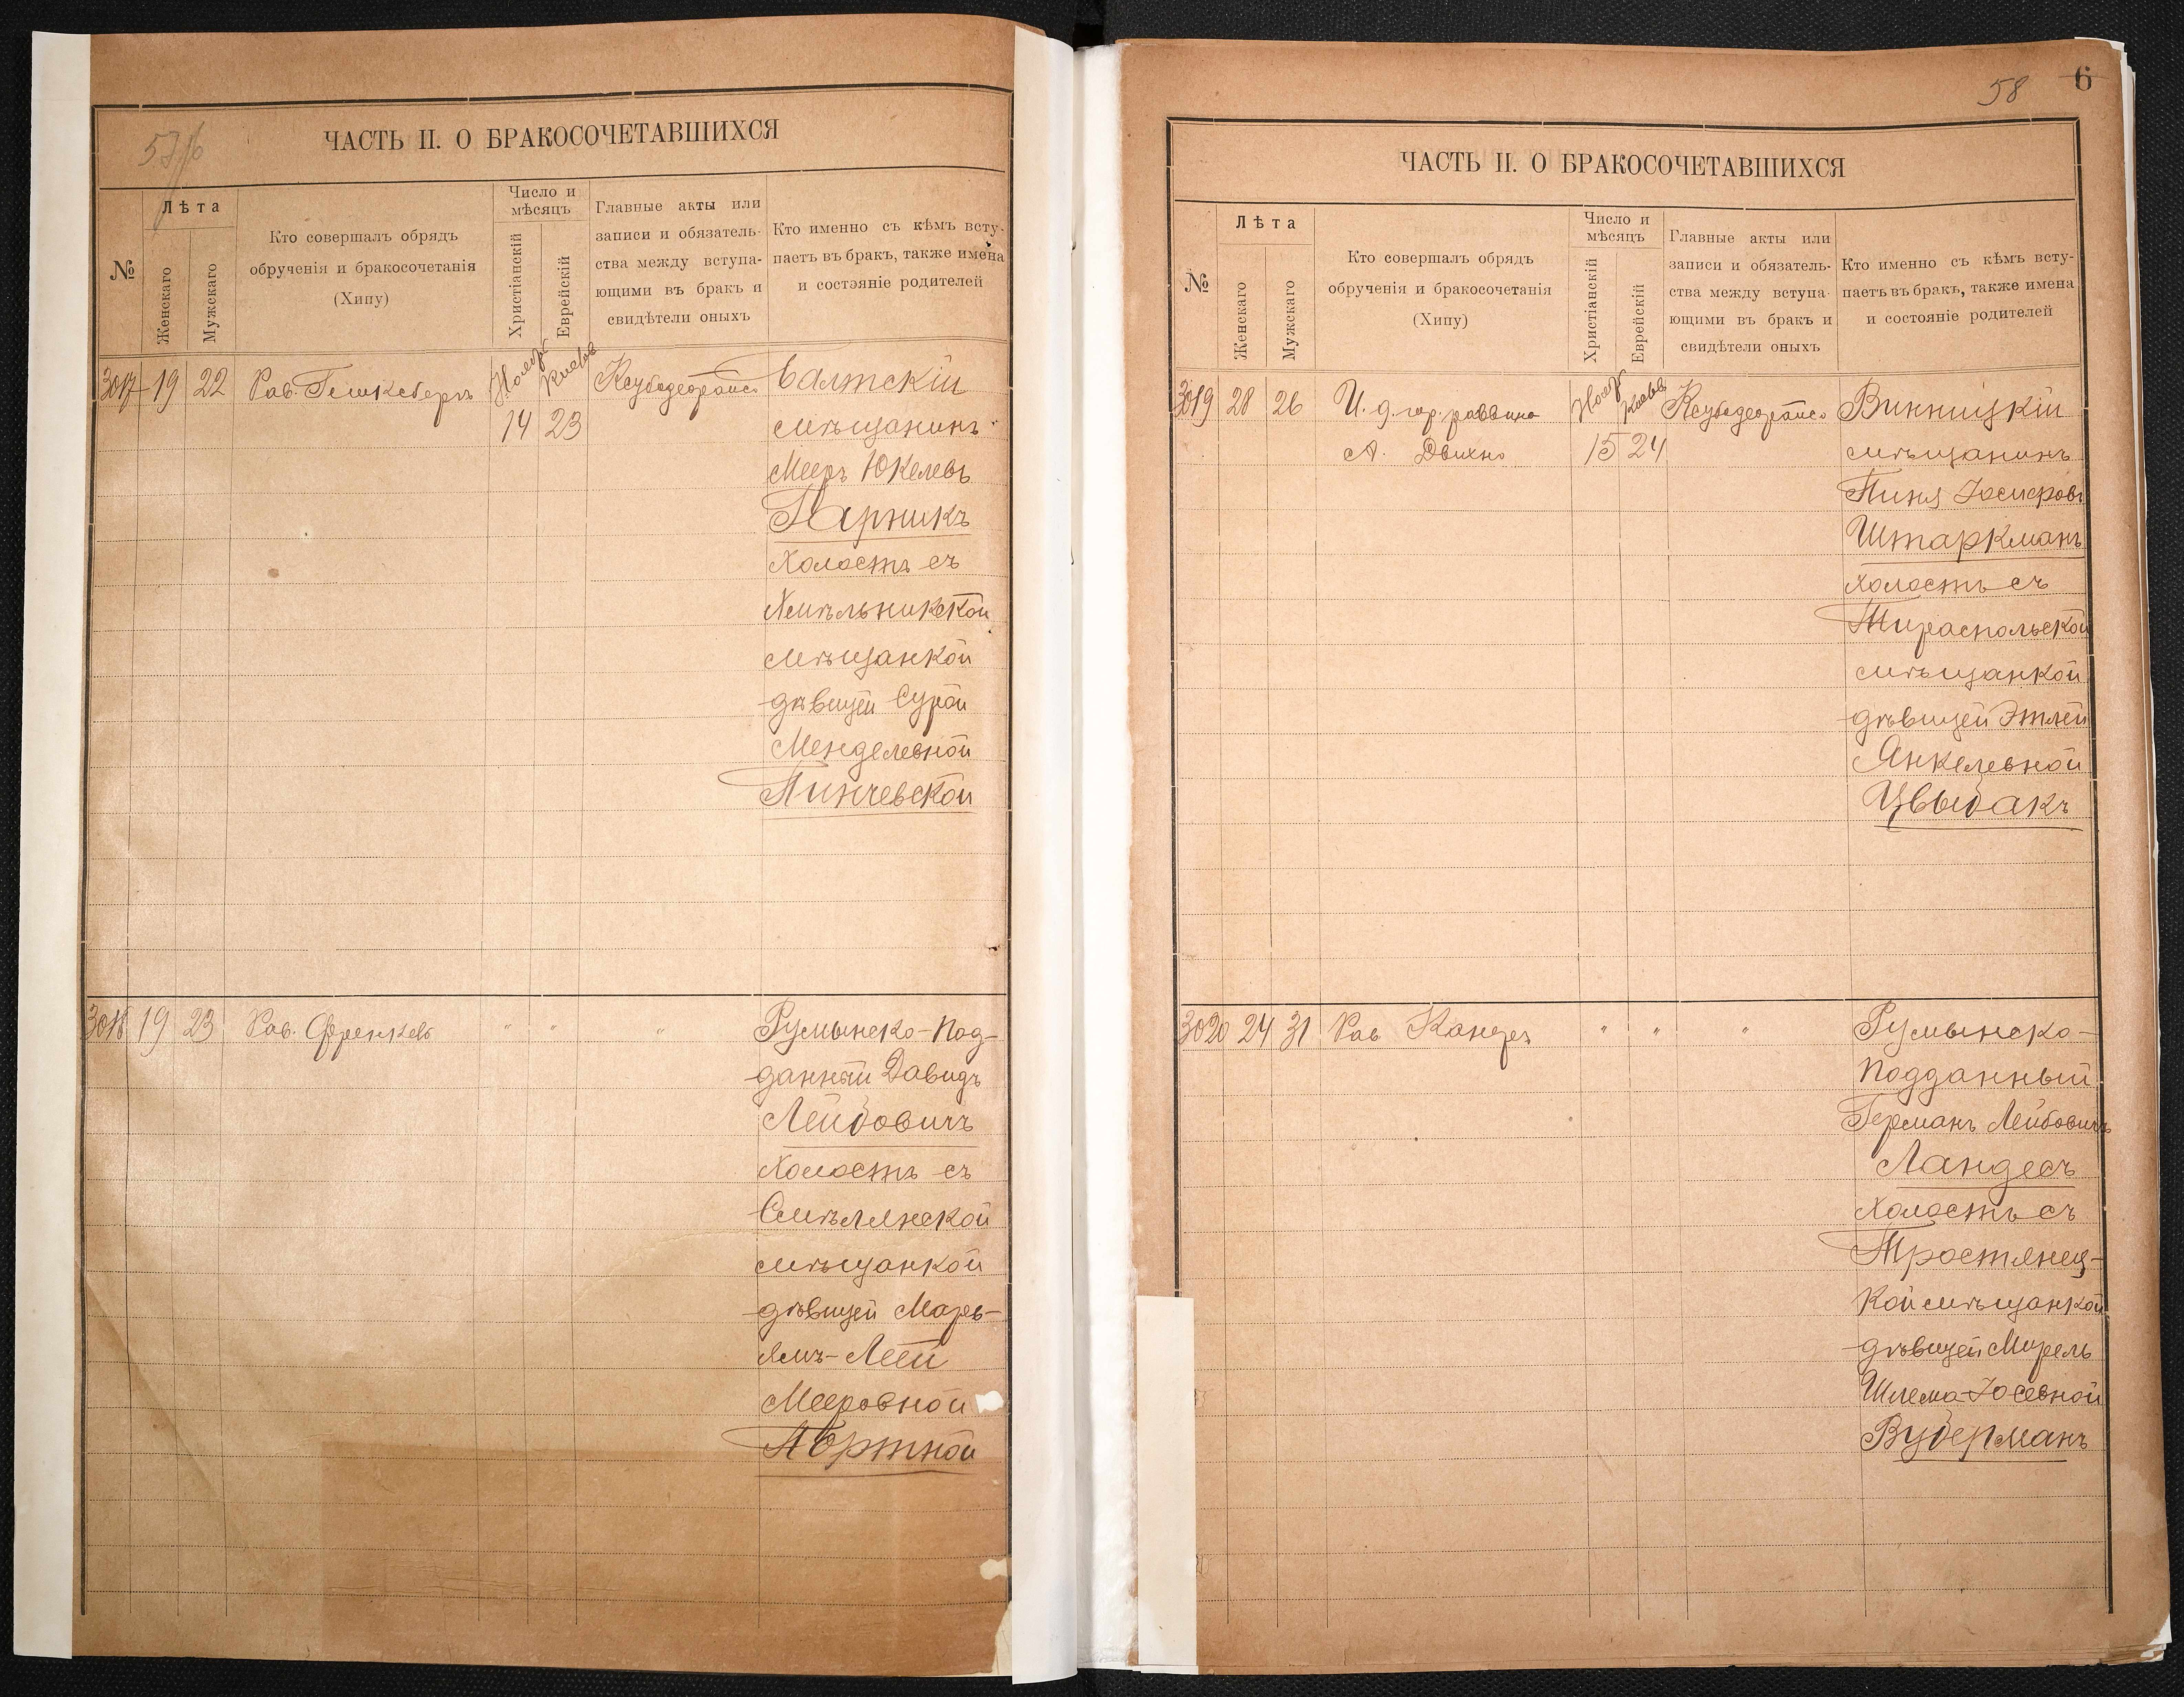 57/б
ЧАСТЬ II. О БРАКОСОЧЕТАВШИХСЯ
№
Лѣта
Женскаго
Мужскаго
Кто совершалъ обрядъ
обрученія и бракосочетанія
(Хипу)
Число и
мѣсяцъ
Христіанскій
Еврейскій
Главные акты или
записи и обязатель-
ства между вступа-
ющими въ бракъ и
свидѣтели оныхъ
Кто именно съ кѣмъ всту-
паетъ въ бракъ, также имена
и состояніе родителей
3017 19 22 Рав.
14 23
Балтскій
мѣщанинъ
Мееръ Юкелевъ
Гарникъ
холостъ съ
Хмѣльникской
мѣщанкой
дѣвицей Сурой
Менделевной
Пинчевской
3018 19 23 Рав. Френкель " " "
Румынско-под-
данный Давидъ
Лейбовичъ
холостъ съ
Смѣлянской
мѣщанкой
дѣвицей Марь-
ямъ-Леей
Мееровной
Портной
58 6
ЧАСТЬ II. О БРАКОСОЧЕТАВШИХСЯ
№
Лѣта
Женскаго
Мужскаго
Кто совершалъ обрядъ
обрученія и бракосочетанія
(Хипу)
Число и
мѣсяцъ
Христіанскій
Еврейскій
Главные акты или
записи и обязатель-
ства между вступа-
ющими въ бракъ и
свидѣтели оныхъ
Кто именно съ кѣмъ всту-
паетъ въ бракъ, также имена
и состояніе родителей
3019 28 26 И. д. гор. раввина
А. 15 24
Винницкій
мѣщанинъ
Пиня Іосифовъ
Штаркманъ
холостъ съ
Тираспольской
мѣщанкой
дѣвицей Этлей
Янкелевной
Цвыбакъ
3020 24 31 Рав " " "
Румынско-
подданный
Германъ Лейбовичъ
Ландесъ
холостъ съ
Тростянец-
кой мѣщанкой
дѣвицей Мирель
Шлема-Іосевной
Вудерманъ